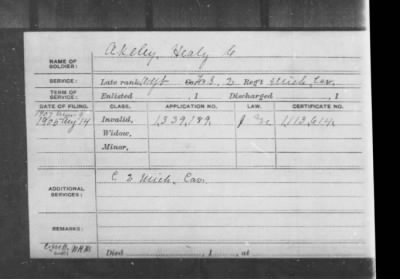 NAME OF
SOLDIER:
Akeley, Healy C
SERVICE:
Late rank, Adjt Co. F&S, 2 Reg't Mich. Cav.
TERM OF
SERVICE:
Enlisted , 1 Discharged , 1
DATE OF FILING. CLASS. APPLICATION NO. LAW. CERTIFICATE NO.
1905 Aug 14 Invalid, 1,339,189, 1,113,614,
Widow,
Minor,
ADDITIONAL
SERVICES:
C 2 Mich. Cav.
REMARKS:
Died , 1 , at